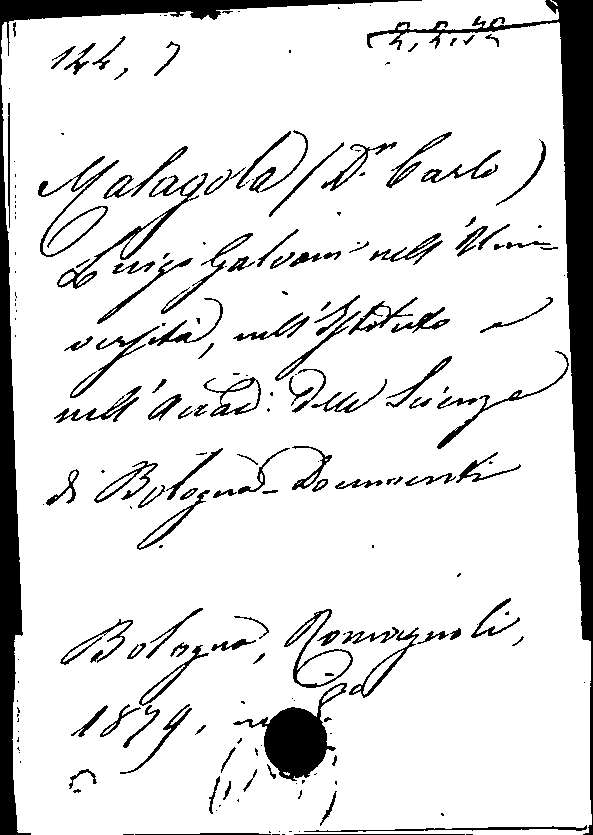 144, 7
Malagola (D.r Carlo)
Luigi Galvani nell'Uni=
versità, nell'Istituto e
nell'Accad: delle Scienze
di Bologna - Documenti
Bologna, Romagnoli,
1879, in 8.º